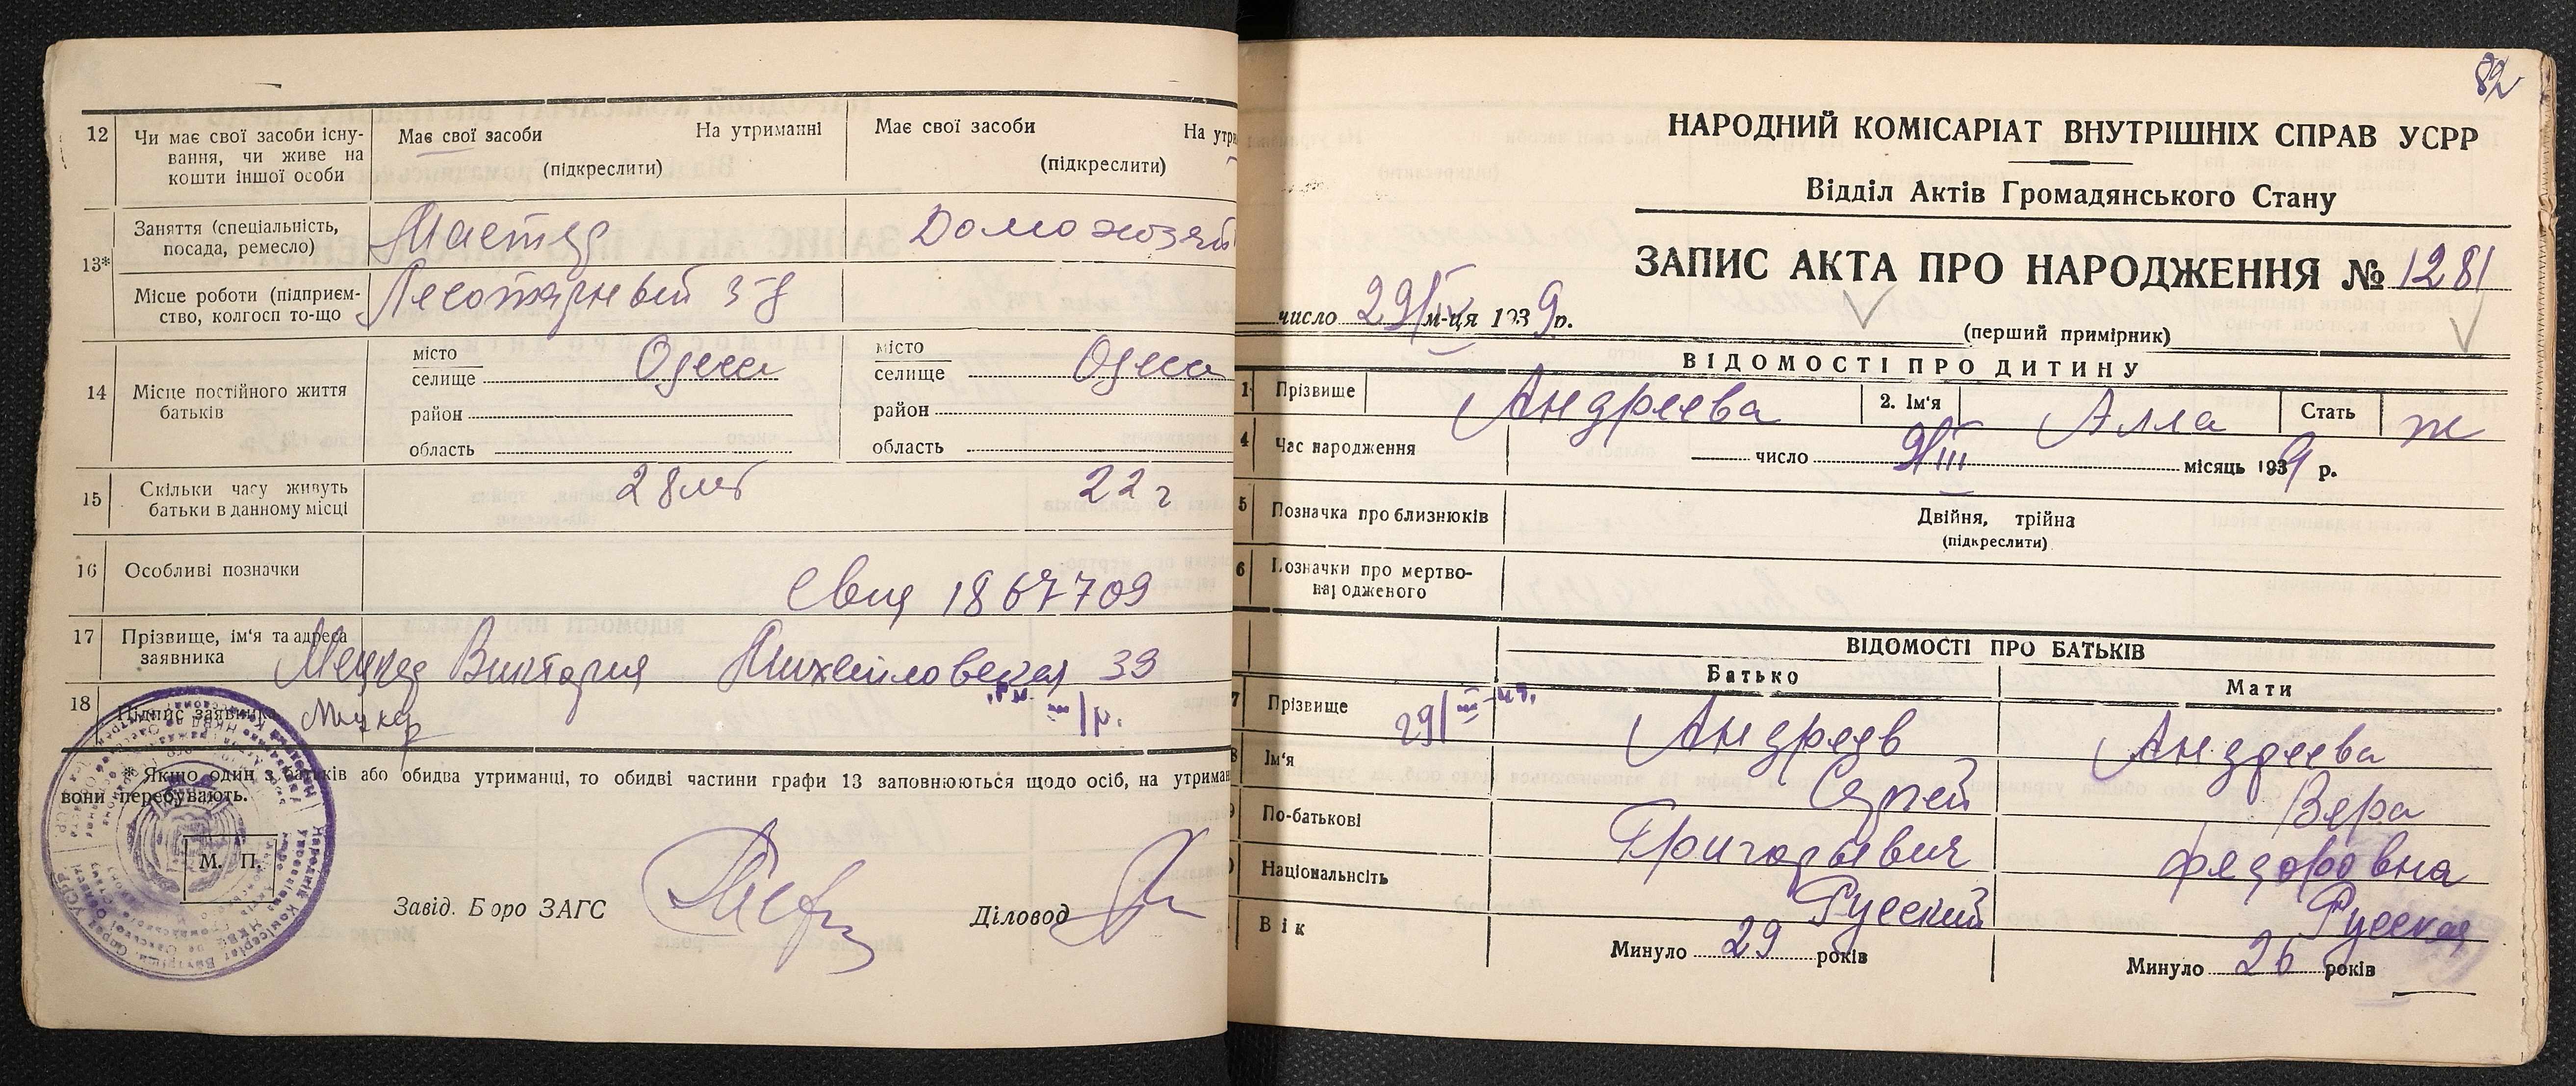 12
Чи має свої засоби існу-
вання, чи живе на
кошти іншої особи
Має свої засоби
На утриманні
(підкреслити)
Має свої засоби
На утри
(підкреслити)
13*
Заняття (спеціальність,
посада, ремесло)
Мастер
Домохозяй
Місце роботи (підприєм-
ство, колгосп то-що
Лесотарный з-д
14
Місце постійного життя
батьків
місто
селище
Одесса
район
область
місто
селище
Одесса
район
область
15
Скільки часу живуть
батьки в данному місці
28 лет
22 г
16
Особливі позначки
1867709
17
Прізвище, ім'я та адреса
заявника
Виктория Михайловская 39
18
Підпис заявника
* Якщо один з батьків або обидва утриманці, то обидві частини графи 13 заповнюються щодо осіб, на утриман
вони перебувають.
М. П.
Завід. Бюро ЗАГС
Діловод
82
НАРОДНИЙ КОМІСАРІАТ ВНУТРІШНІХ СПРАВ УСРР
Відділ Актів Громадянського Стану
ЗАПИС АКТА ПРО НАРОДЖЕННЯ № 1281
число 29/IV м-ця 1939 р.
(перший примірник)
ВІДОМОСТІ ПРО ДИТИНУ
1
Прізвище
Андреева
2. Ім'я
Алла
Стать
ж
4
Час народження
число 9/III місяць 1939 р.
5
Позначка про близнюків
Двійня, трійня
(підкреслити)
6
Позначки про мертво-
народженого
ВІДОМОСТІ ПРО БАТЬКІВ
Батько
Мати
7
Прізвище
29/III
Андреев
Андреева
8
Ім'я
Сергей
Вера
По-батькові
Григорьевич
Федоровна
Національнсіть
Русский
Русская
Вік
Минуло 29 років
Минуло 26 років